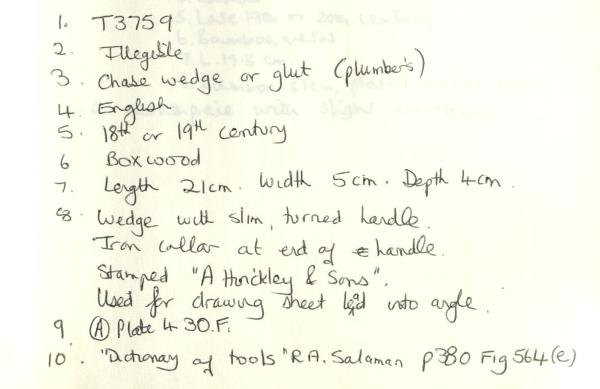 1. T3759
2. Illegible
3. Chase wedge or glut (plumber's)
4. English
5. 18th or 19th century
6 Boxwood
7. Length 21cm. Width 5cm. Depth 4cm.
8. Wedge with slim, turned handle.
Iron collar at end of handle.
Stamped "A Hinckley & Sons".
Used for drawing sheet lead into angle.
9 (A) Plate 4 30.F.
10. "Dictionary of tools" R.A. Salaman p380 Fig 564(e)